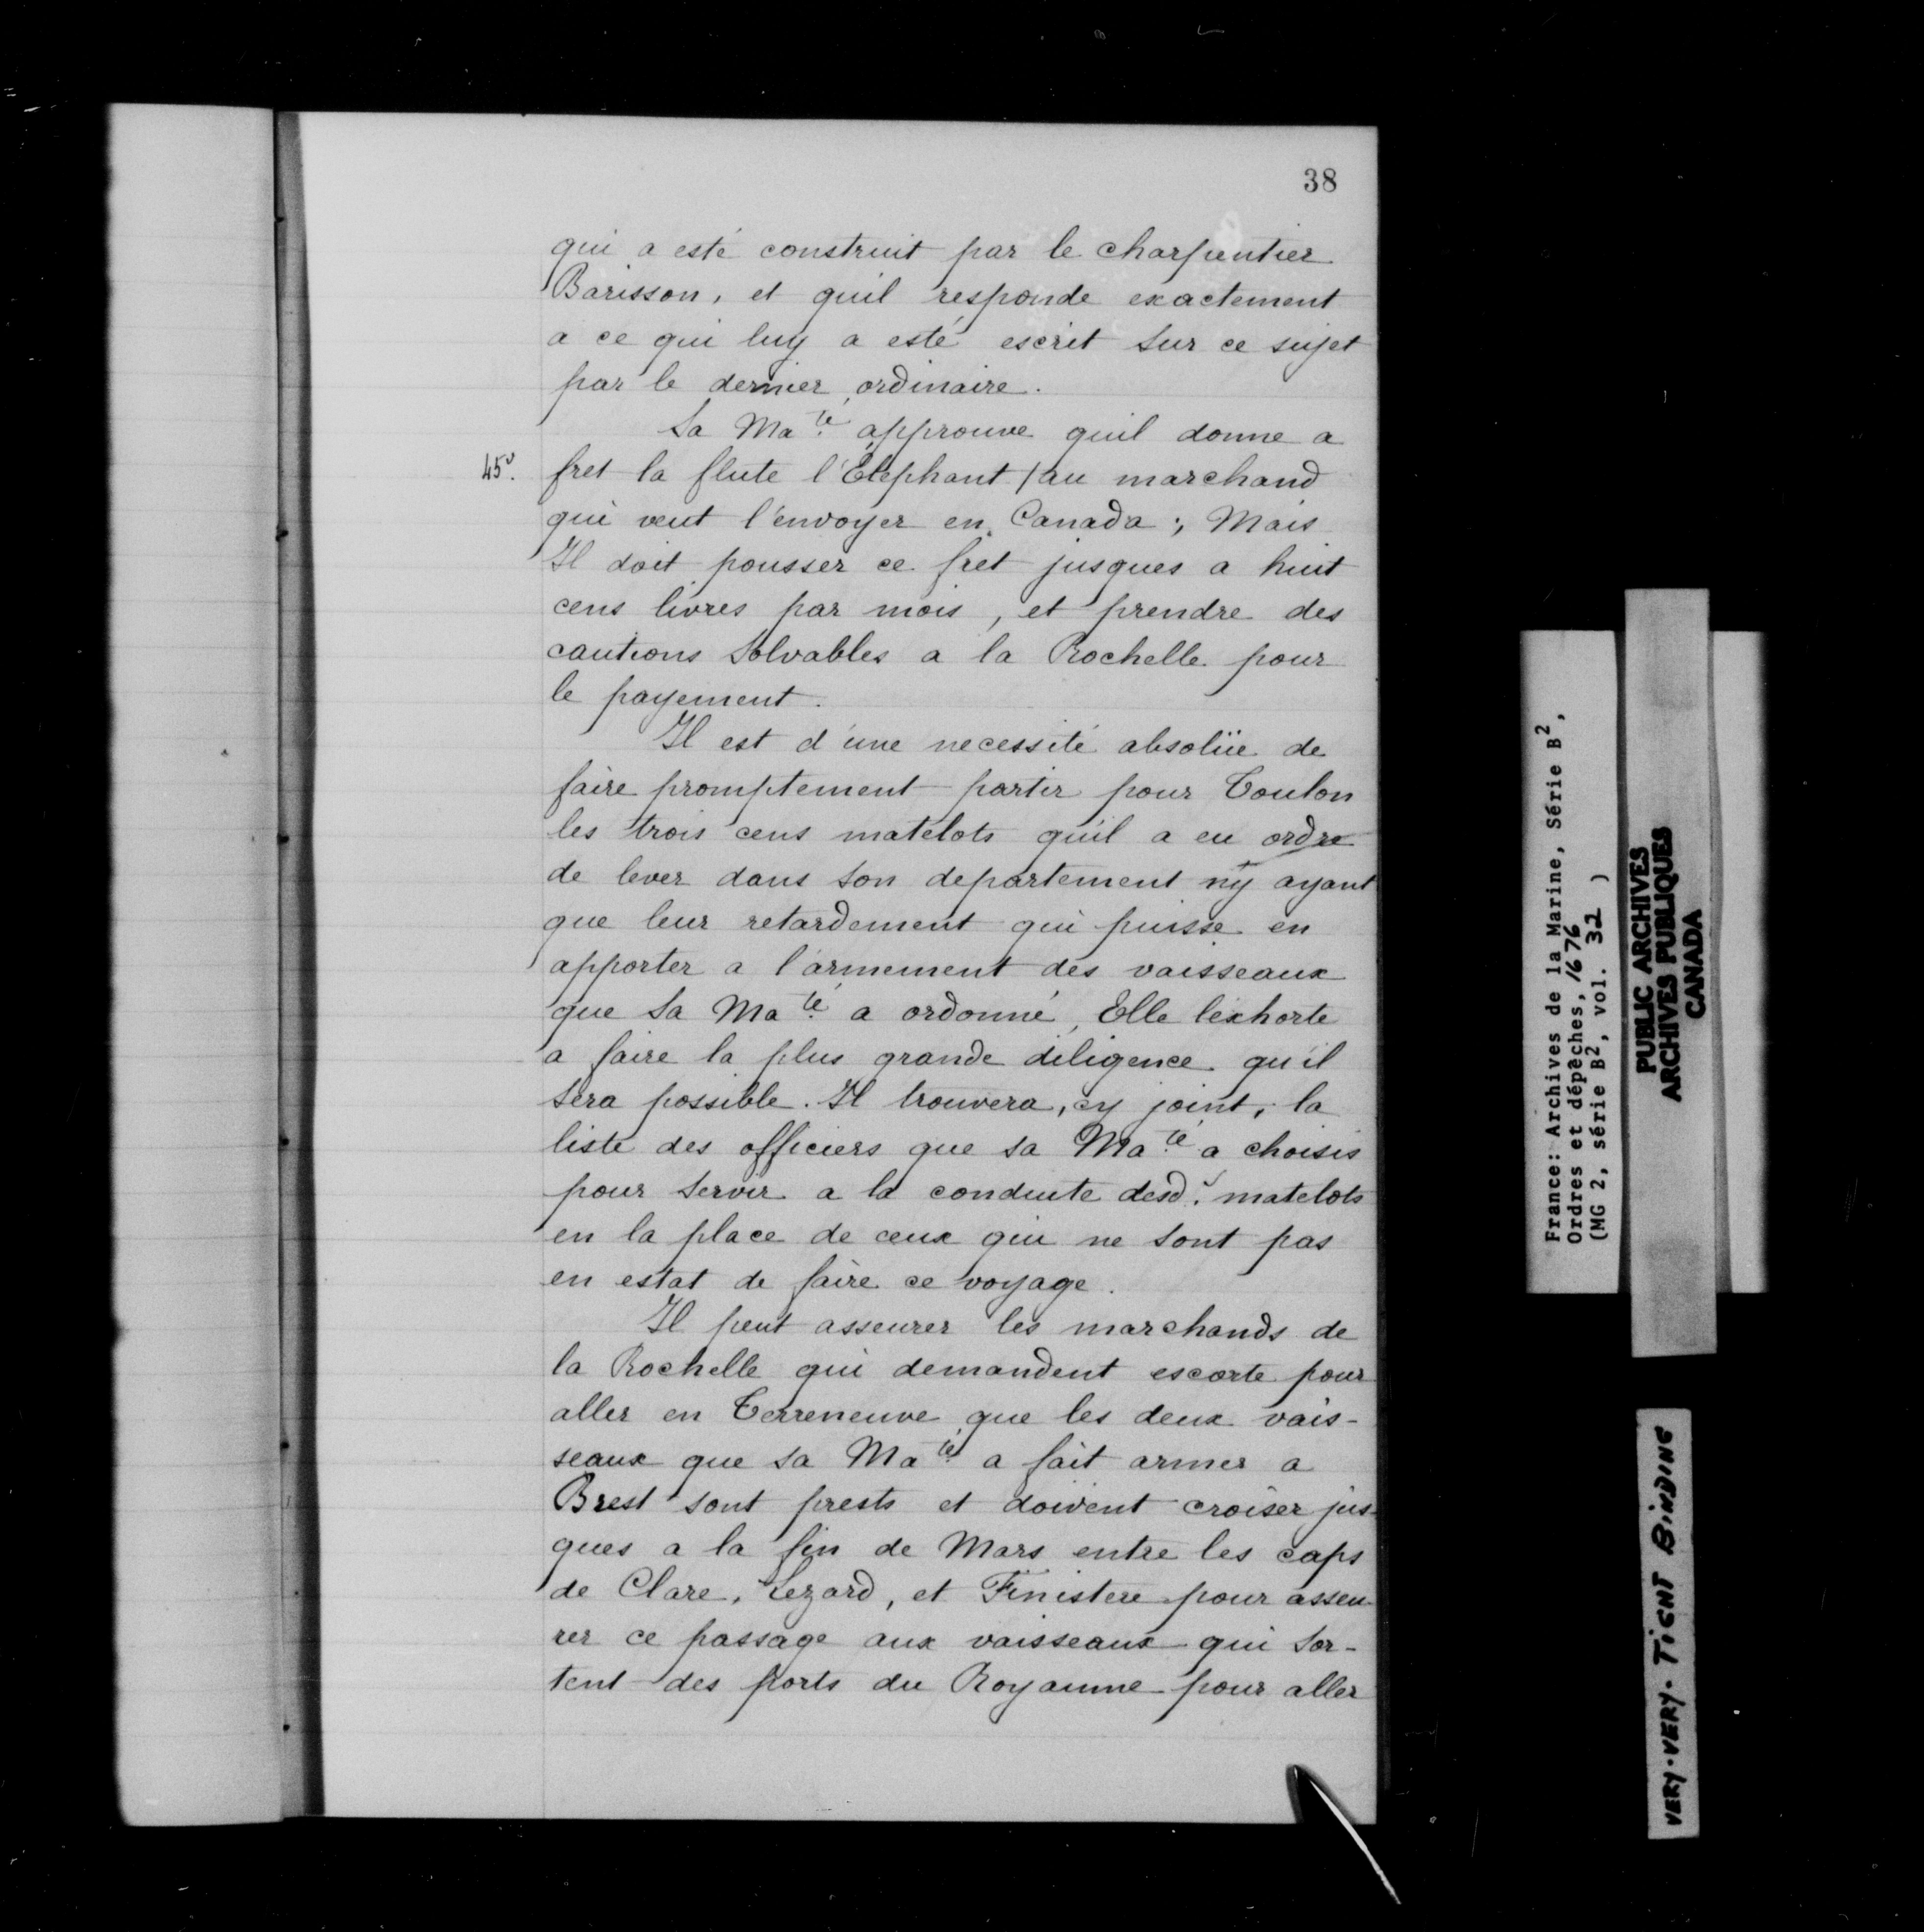 38
qui a esté construit par le charpentier
Barisson, et quil responde exactement
a ce qui luy a esté escrit sur ce sujet
par le dernier ordinaire.
Sa Ma.té approuve quil donne a
45v. fret la flute l'Elephant / au marchand
qui veut l'envoyer en Canada ; Mais
Il doit pousser ce fret jusques a huit
cens livres par mois, et prendre des
cautions solvables a la Rochelle pour
le payement.
Il est d'une necessité absolüe de
faire promptement partir pour Toulon
les trois cens matelots qu'il a eu ordre
de lever dans son departement n'y ayant
que leur retardement qui puisse en
apporter a l'armement des vaisseaux
que sa Ma.té a ordonné, Elle l'exhorte
a faire la plus grande diligence qu'il
sera possible. Il trouvera, cy joint, la
liste des officiers que sa Ma.té a choisis
pour servir a la conduite desd. matelots
en la place de ceux qui ne sont pas
en estat de faire ce voyage.
Il peut asseurer les marchands de
la Rochelle qui demandent escorte pour
aller en Terreneuve que les deux vais-
seaux que sa Ma.té a fait armer a
Brest sont prests et doivent croiser jus-
ques a la fin de Mars entre les caps
de Clare, Lezard, et Finistere pour asseu-
rer ce passage aux vaisseaux qui sor-
tent des ports du Royaume pour aller
France: Archives de la Marine, Série B2,
Ordres et dépêches, 1676
(MG 2, série B2, vol. 32 )
PUBLIC ARCHIVES
ARCHIVES PUBLIQUES
CANADA
VERY-VERY-TIGHT BINDING